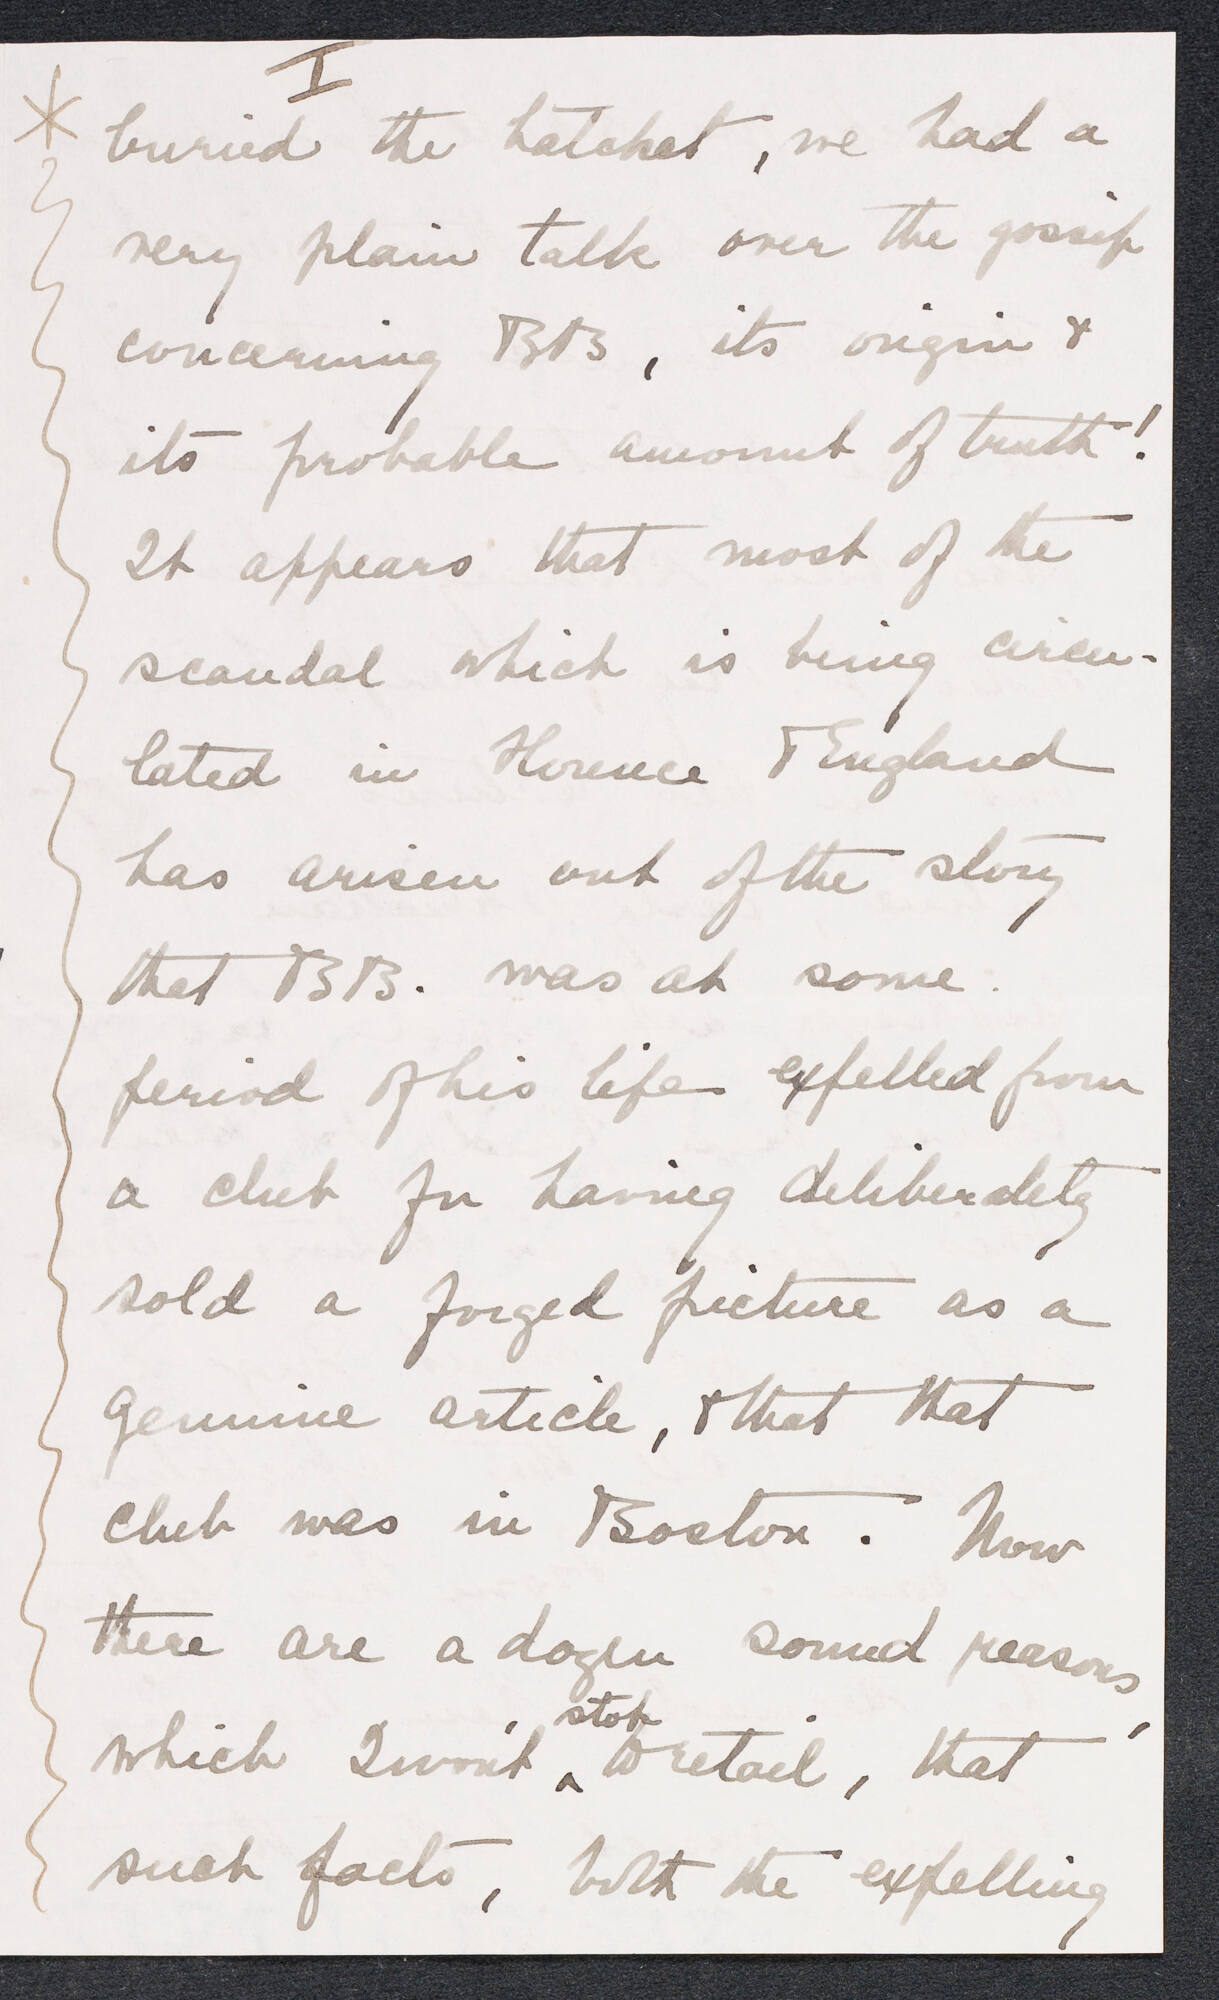 I
* buried the hatchet, we had a
very plain talk over the gossip
concerning BB, its origin &
its probable amount of truth!
It appears that most of the
scandal which is being circu-
lated in Florence & England
has arisen out of the story
that BB. was at some
period of his life expelled from
a club for having deliberately
sold a forged picture as a
genuine article, & that that
club was in Boston. Now
there are a dozen sound reasons,
which I won't stop to retail, that
such facts, both the expelling